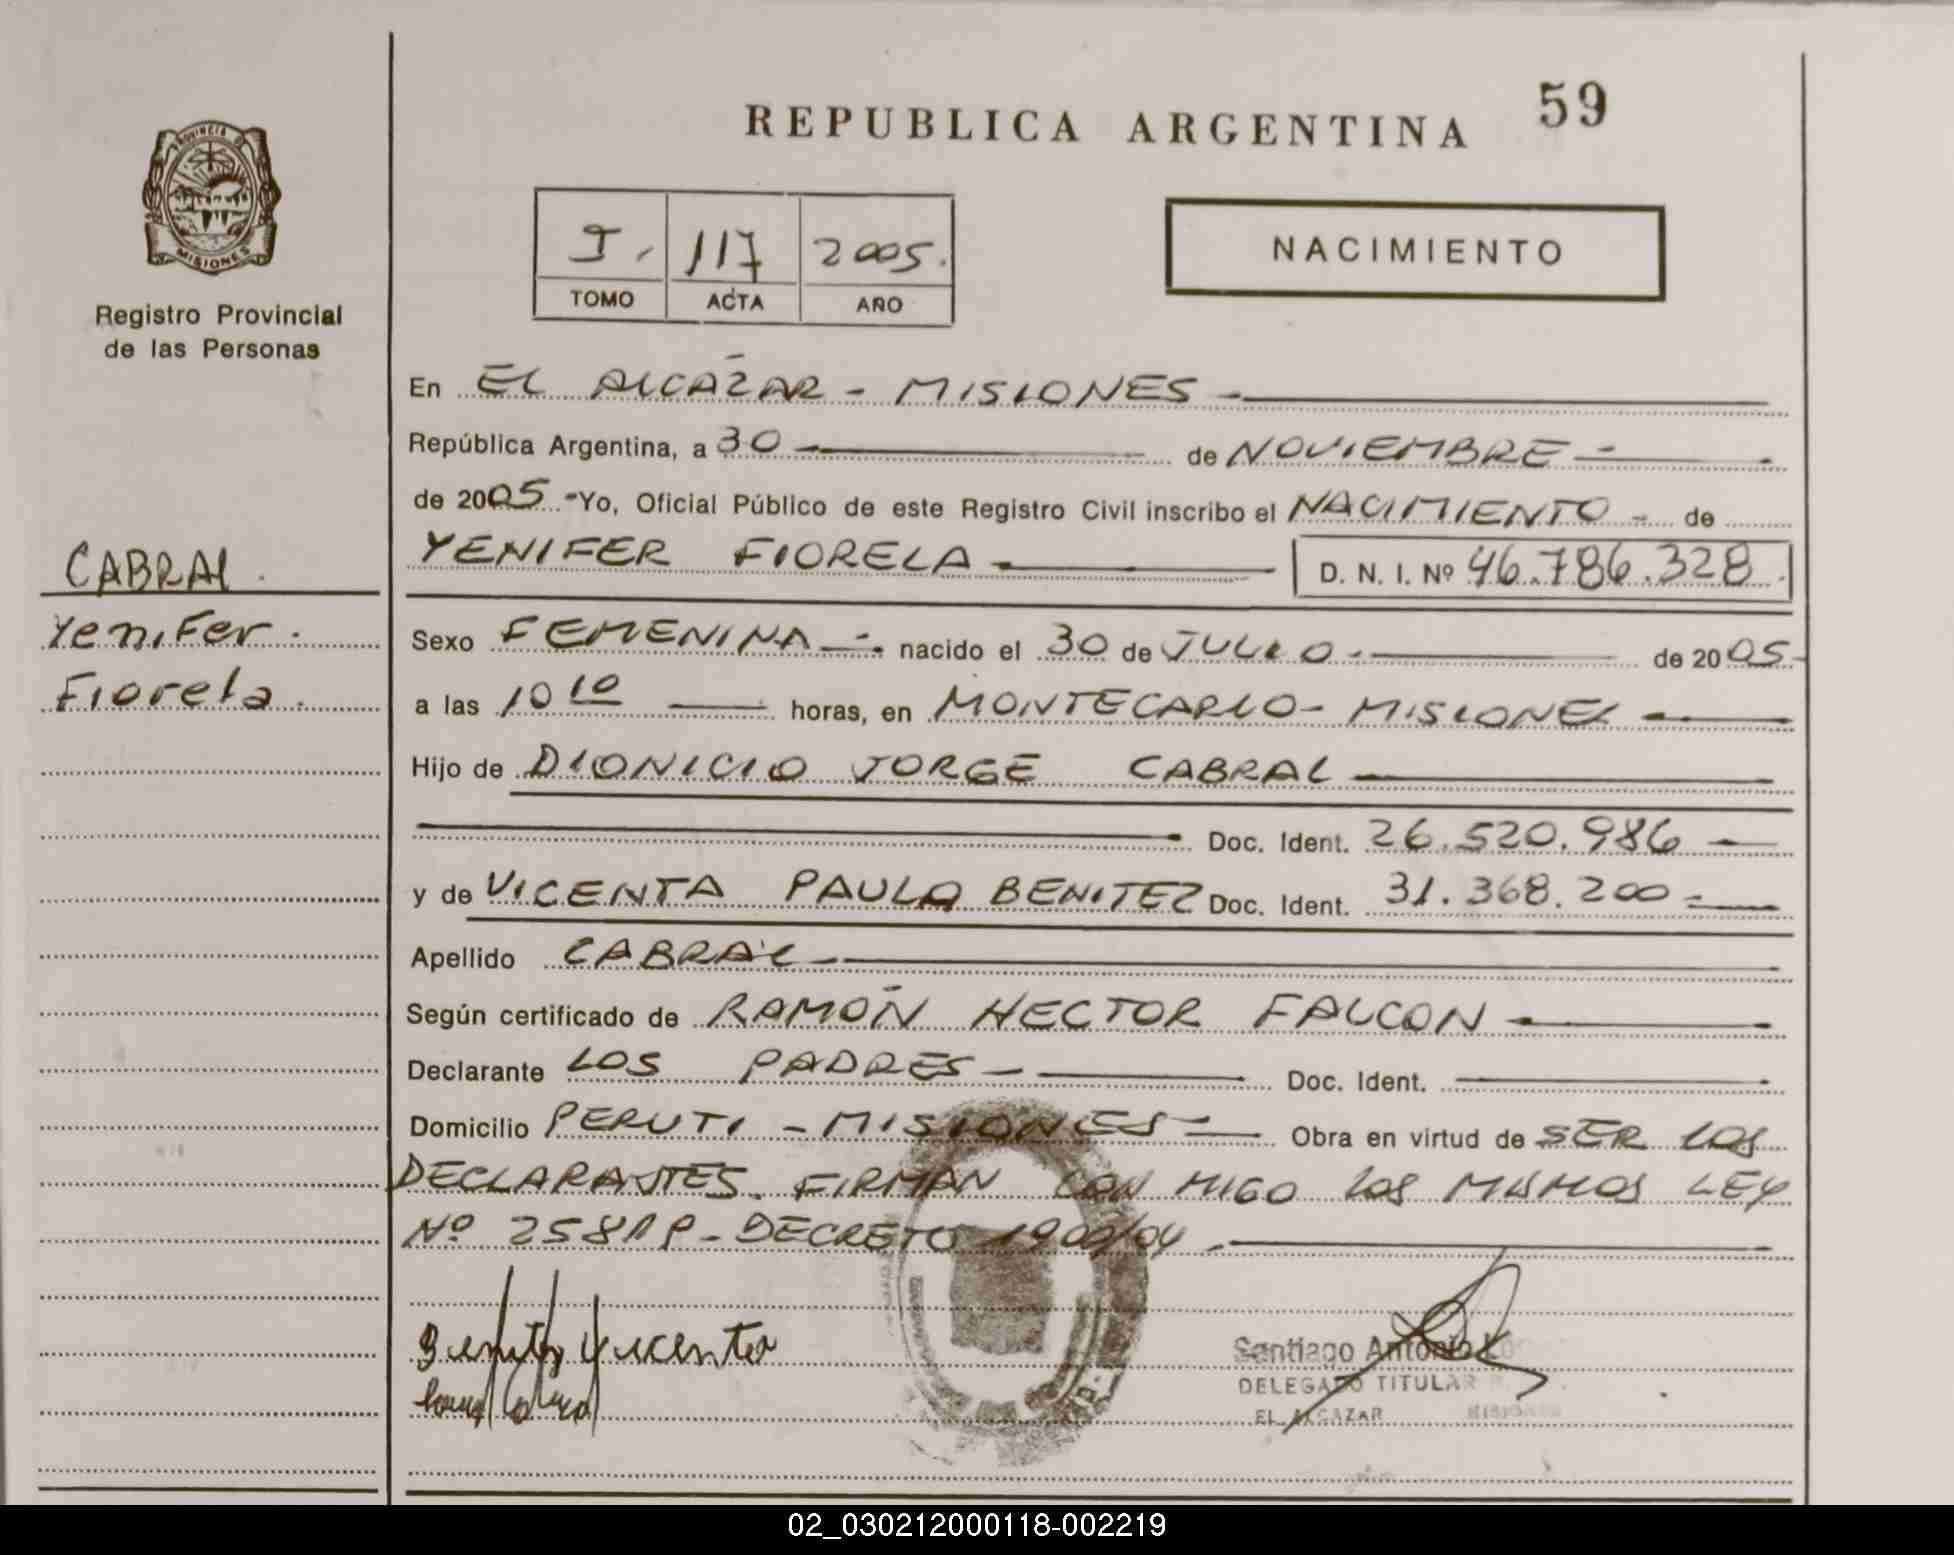 REPUBLICA ARGENTINA 59
PROVINCIA DE
MISIONES
Registro Provincial
de las Personas
I. 117 2005.
TOMO ACTA AÑO
NACIMIENTO
En EL ALCAZAR - MISIONES -
República Argentina, a 30 de NOVIEMBRE -
de 2005 - Yo, Oficial Público de este Registro Civil inscribo el NACIMIENTO - de
YENIFER FIORELA D. N. I. Nº 46.786.328.
CABRAL.
Yenifer.
Fiorela.
Sexo FEMENINA - nacido el 30 de JULIO - de 2005 -
a las 10 10 horas, en MONTECARLO - MISIONES
Hijo de DIONICIO JORGE CABRAL
Doc. Ident. 26.520.986 -
y de VICENTA PAULA BENITEZ Doc. Ident. 31.368.200 -
Apellido CABRAL
Según certificado de RAMÓN HECTOR FALCON
Declarante LOS PADRES - Doc. Ident.
Domicilio PERUTI - MISIONES - Obra en virtud de SER LOS
DECLARANTES. FIRMAN CON MIGO LOS MISMOS LEY
Nº 2581 P - DECRETO 1900/04
Benitez Vicenta
Santiago Antonio
DELEGADO TITULAR
EL ALCAZAR MISIONES
02_030212000118-002219